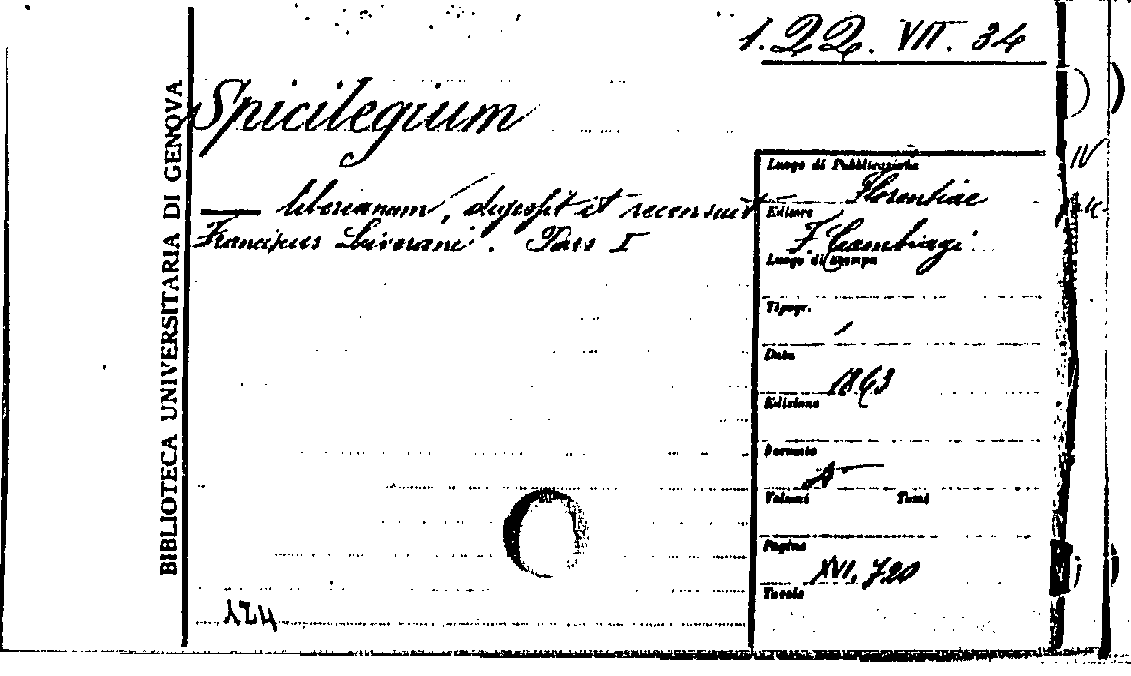 1. QQ. VII. 34
Spicilegium
BIBLIOTECA UNIVERSITARIA DI GENOVA
— liberianum, et recensuit
Franciscus Liverani. Pars I
Luogo di Pubblicazione
Florentiae
Editore
F. Cambiagi
Luogo di stampa
Tipogr.
Data
1863
Edizione
Formato
Volumi Tomi
Pagine
XVI, 720
Tavole
124
IV